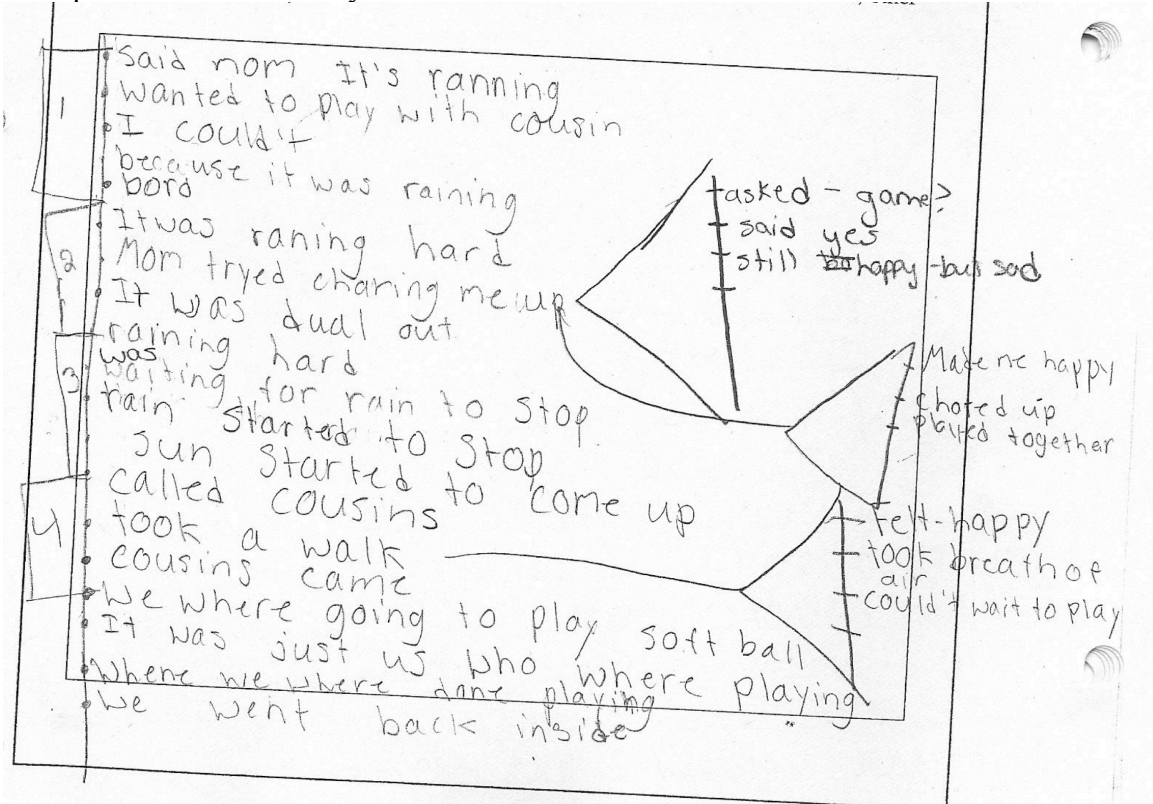 said mom It's ranning
wanted to play with cousin
I could't
because it was raining
bord
It was raning hard
Mom tryed charing me up
It was dual out
raining hard
was
waiting for rain to stop
rain started to stop
sun started to come up
called cousins
took a walk
cousins came
We where going to play soft ball
It was just us who where playing
Where we where done playing
We went back inside
1
2
3
4
asked - game?
said yes
still happy - but sad
Made me happy
chared up
played together
Felt-happy
took breath of
air
could't wait to play